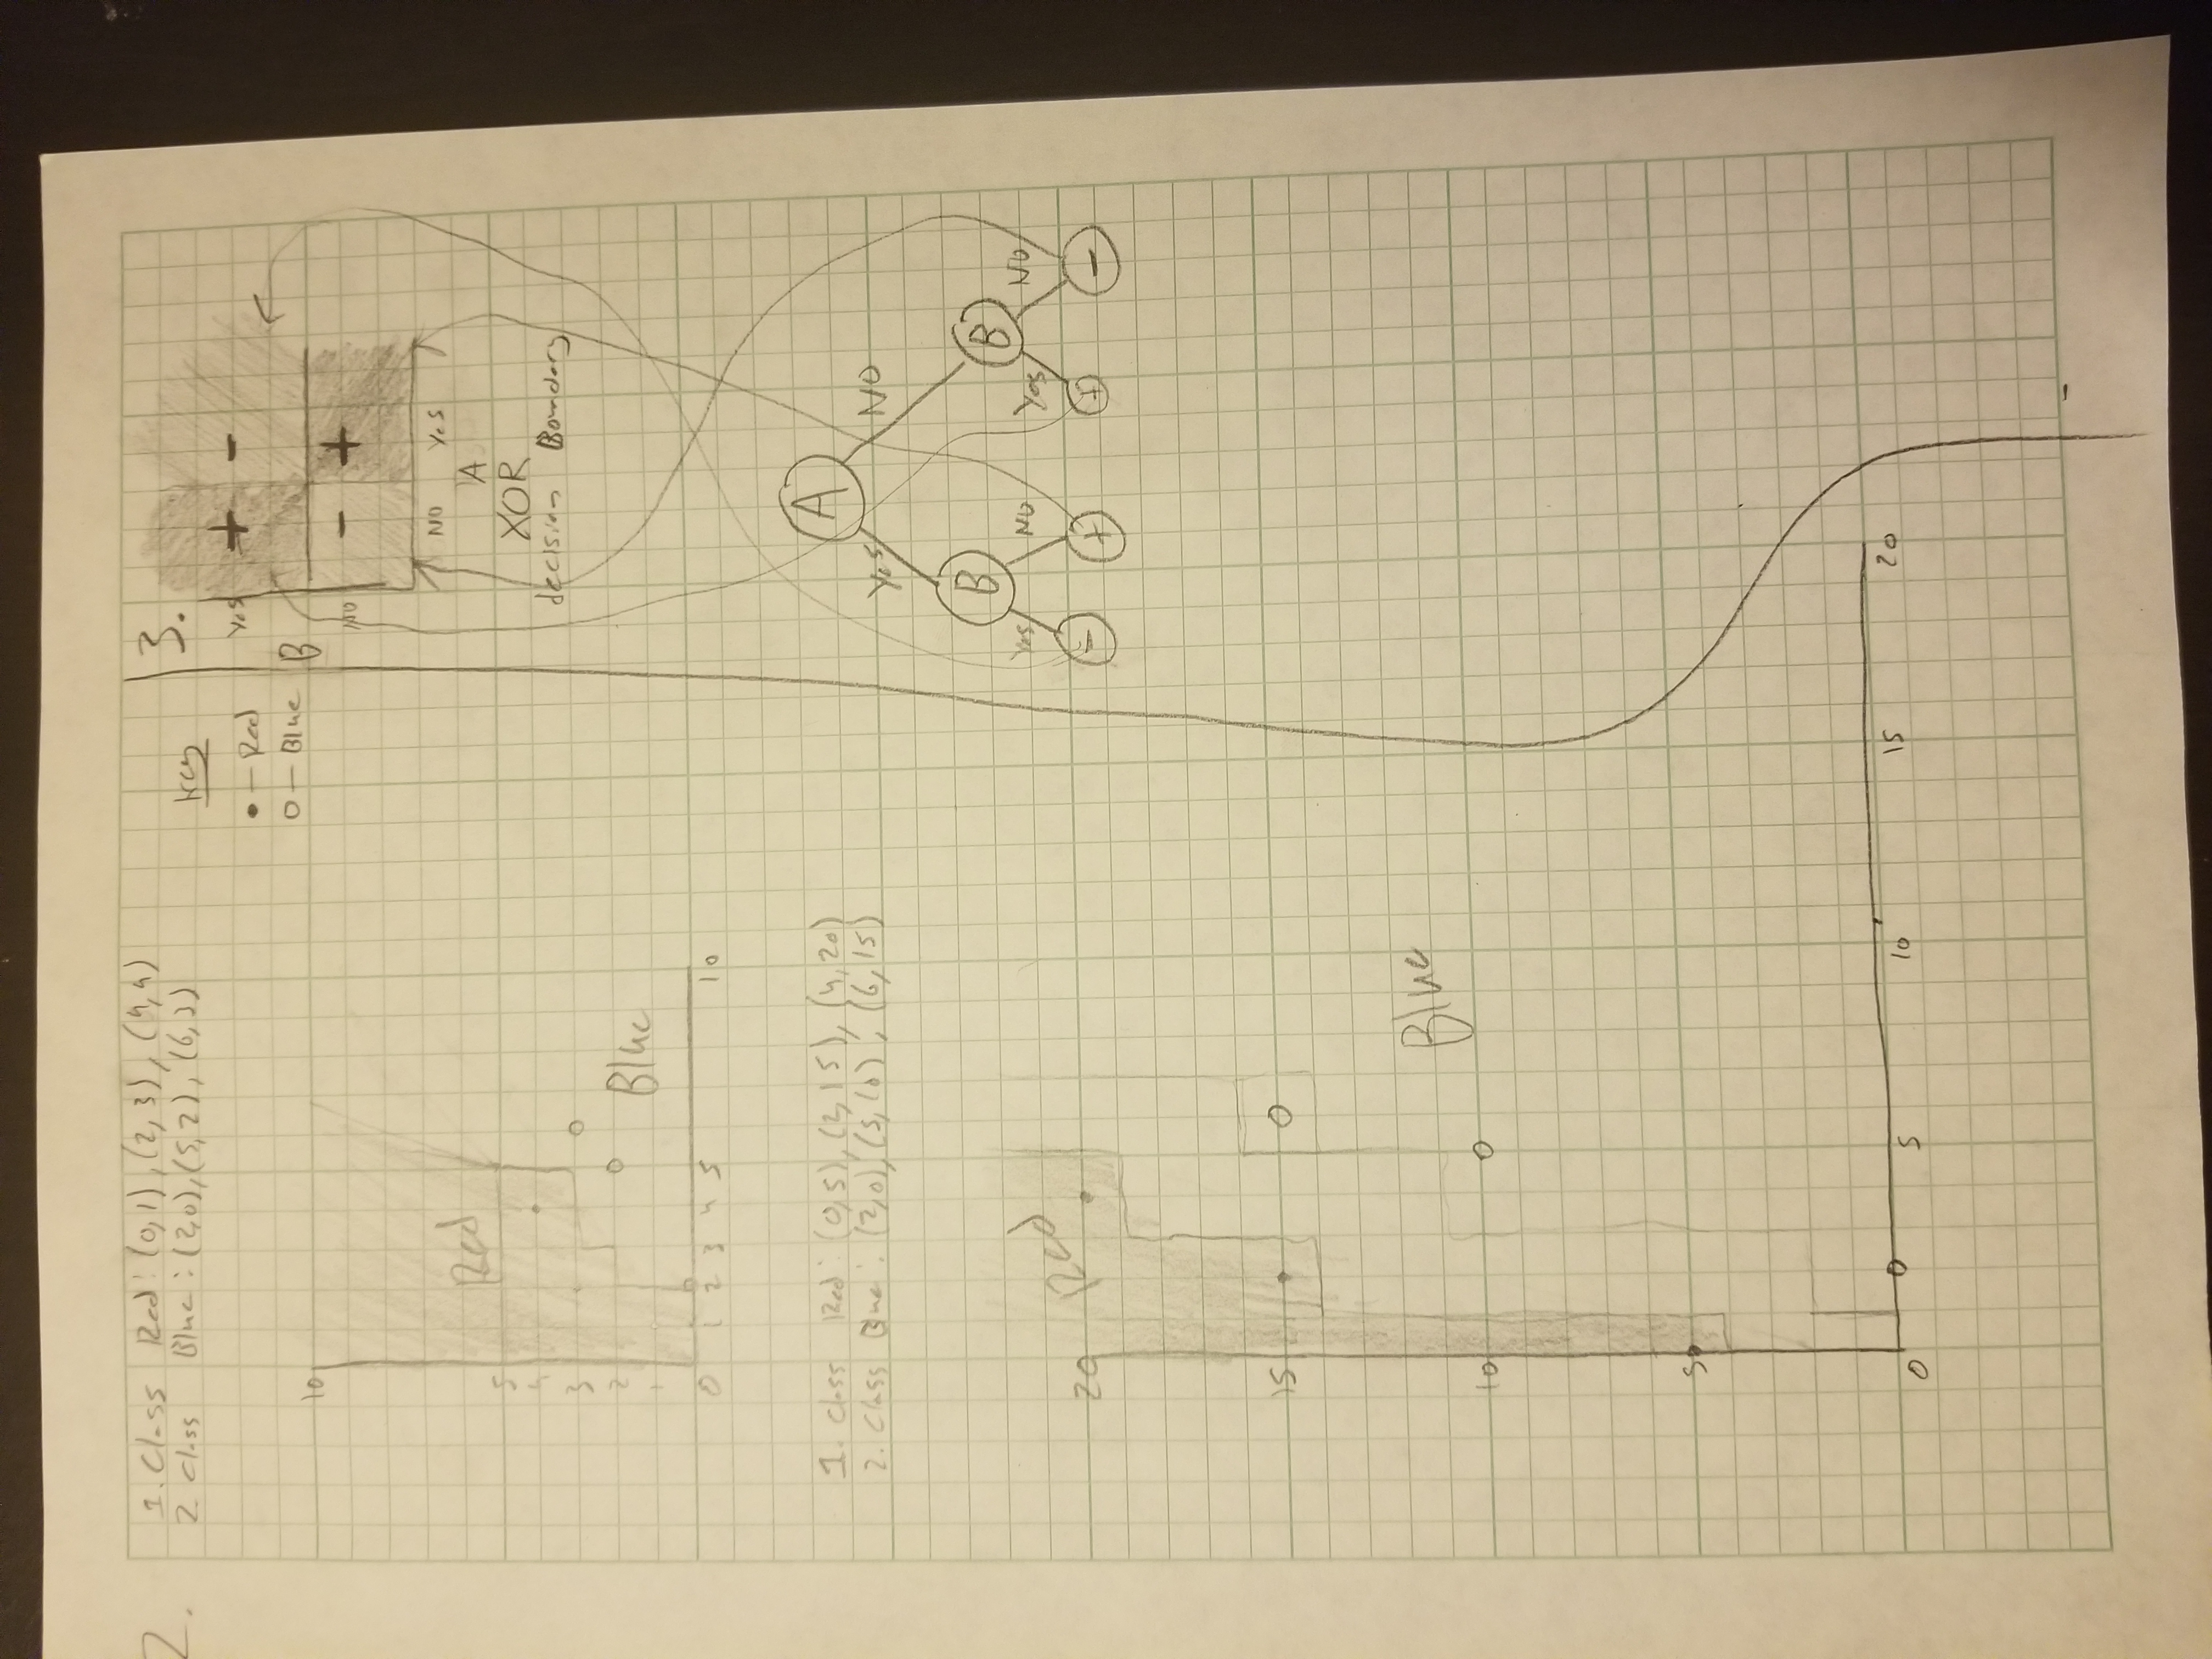 2.
1. Class Red: (0,1), (2,3), (4,4)
2 class Blue: (2,0), (5,2), (6,3)
Key
• — Red
O — Blue
10
Red
5
4
3
2
1
Blue
0 1 2 3 4 5 10
1. class Red: (0,5), (2,15), (4,20)
2. Class Blue: (2,0), (5,10), (6,15)
Red
20
15
Blue
10
5
0 5 10 15 20
3.
Yes + -
B
NO - +
NO Yes
A
XOR
decision Boundary
A
Yes NO
B B
Yes NO Yes NO
- + + -